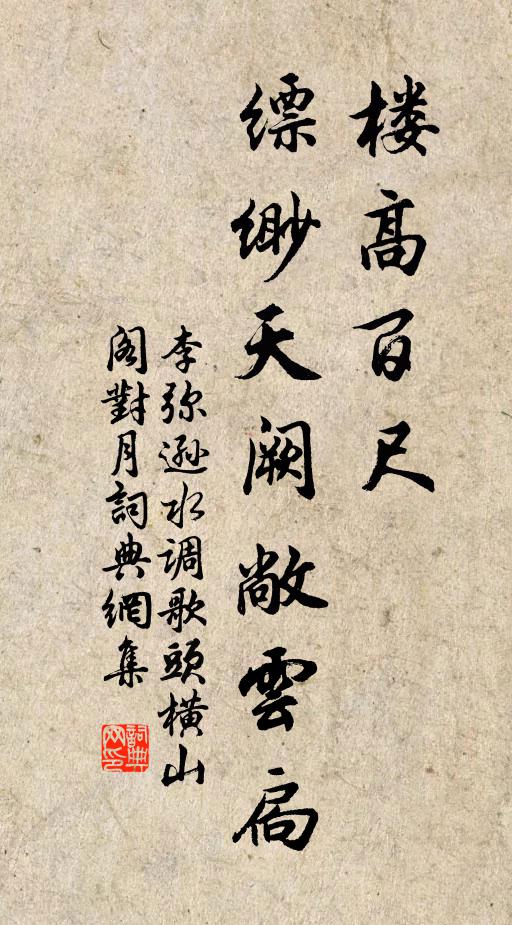 楼高百尺
缥缈天阙敞雲扃
李弥遜水调歌頭横山
阁對月詞典網集
詞典
网印